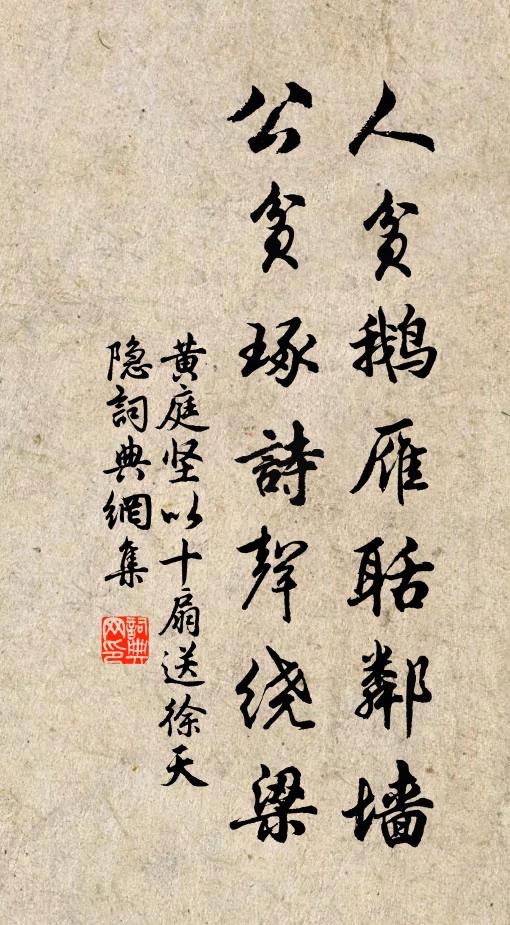 人贫鹅雁聒鄰墙
公贫琢詩聲绕梁
黄庭坚以十扇送徐天
隐詞典網集
詞典网印